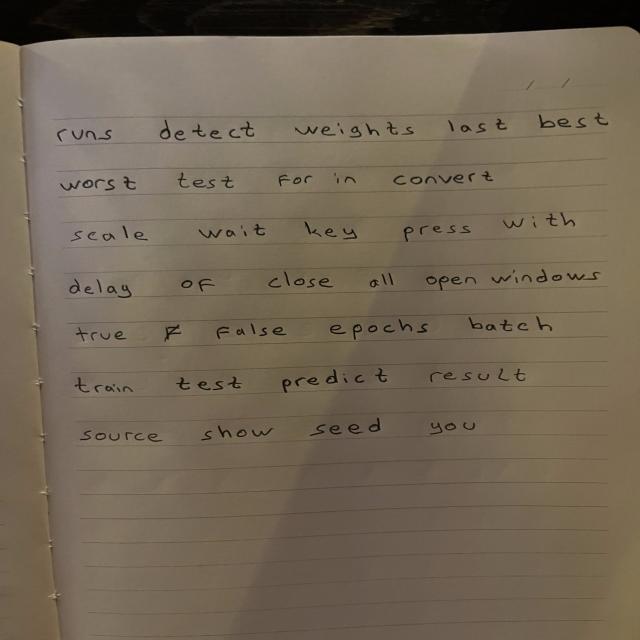 runs detect weights last best
worst test For in convert
scale wait key press with
delay OF close all open windows
true False epochs batch
train test predict result
source show seed you